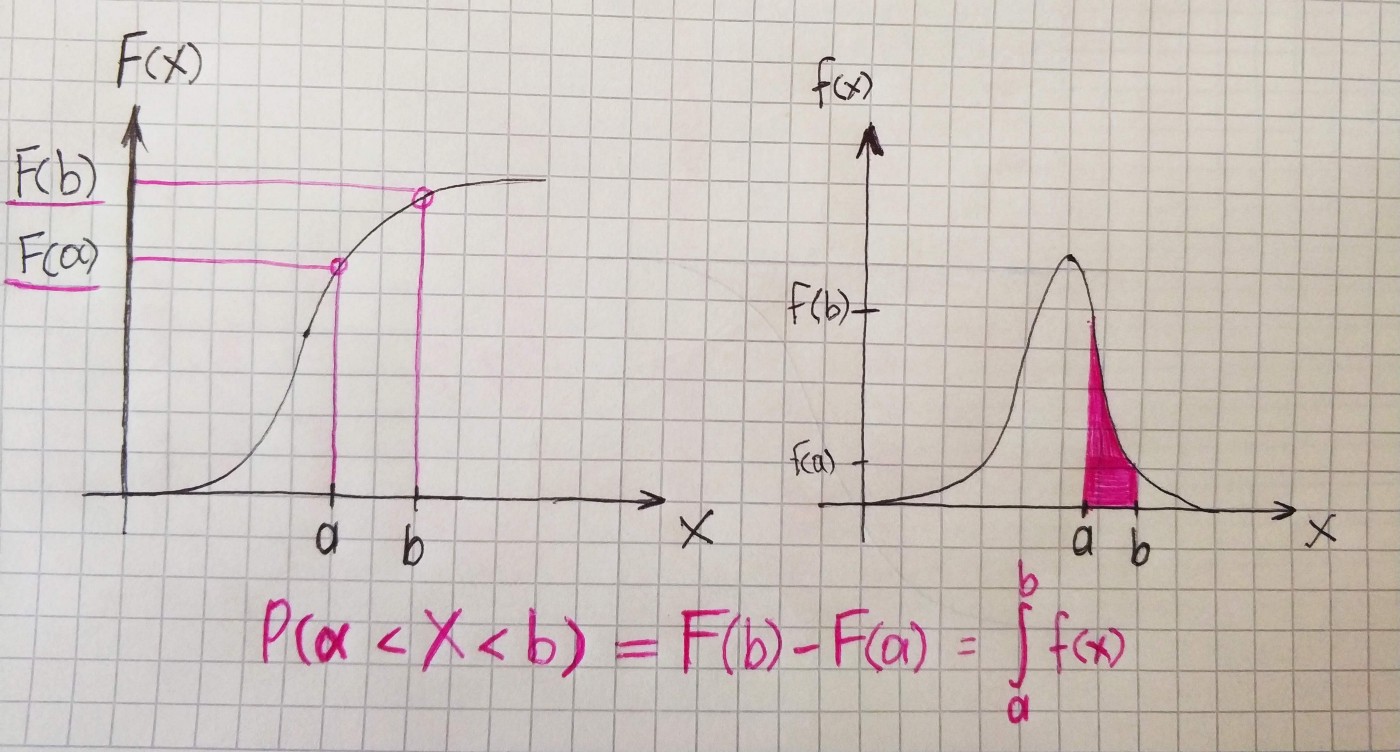 F(x)
F(b)
F(a)
a b
x
f(x)
f(b)
f(a)
a b
x
P(a < X < b) = F(b) - F(a) = ∫ₐᵇ f(x)